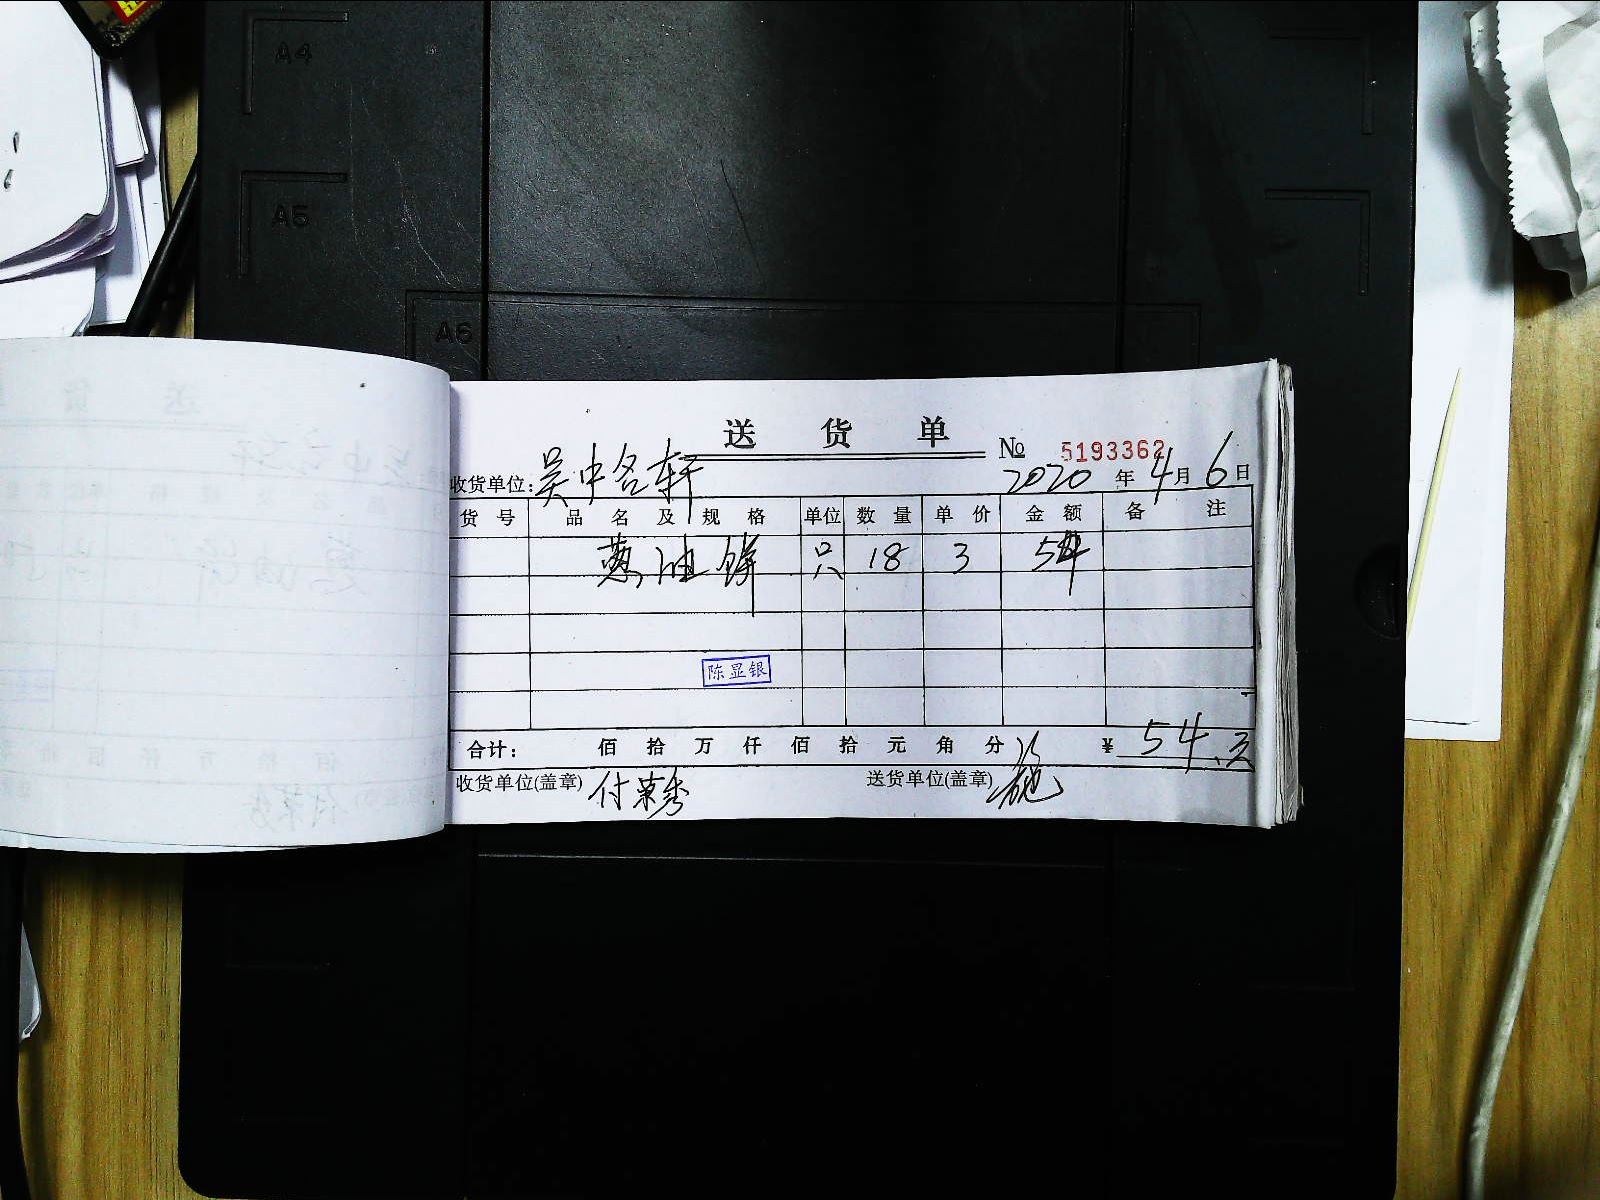 A4
A5
A6
送货单
№ 5193362
收货单位：吴中名轩 2020年4月6日
货号 品名及规格 单位 数量 单价 金额 备注
葱油饼 只 18 3 54
陈显银
合计： 佰 拾 万 仟 佰 拾 元 角 分 ¥ 54.元
收货单位(盖章) 付荣秀 送货单位(盖章)